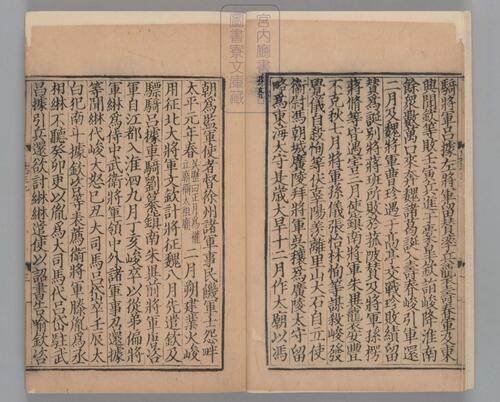 宮内廳書陵部
圖書寮文庫藏
騎將軍呂據左將軍留贊率兵襲壽春軍及東
興聞欽等敗壬寅兵進于橐皋欽詣峻降淮南
餘衆數萬口來奔魏諸葛誕入壽春峻引軍還
二月及魏將軍曹珍遇于高亭交戰珍敗績留
贊爲誕別將蔣班所敗於菰陂贊及將軍孫楞
蔣脩等皆遇害三月使鎮南將軍朱異襲安豐
不克秋七月將軍孫儀張怡林恂等謀殺峻發
覺儀自殺恂等伏辜陽羨離里山大石自立使
衛尉馮朝城廣陵拜將軍吳穰爲廣陵太守留
略爲東海太守是歲大旱十二月作太廟以馮
朝爲監軍使者督徐州諸軍事民饑軍士怨畔
太平元年春吳歷曰正月爲權立廟稱太祖廟二月朔建業火峻
用征北大將軍文欽計將征魏八月先遣欽及
驃騎呂據車騎劉纂鎮南朱異前將軍唐咨
軍自江都入淮泗九月丁亥峻卒以從弟偏將
軍綝爲侍中武衛將軍領中外諸軍事召還據
等聞綝代峻大怒己丑大司馬呂岱卒壬辰太
白犯南斗據欽咨等表薦衛將軍滕胤爲丞
相綝不聽癸卯更以胤爲大司馬代呂岱駐武
昌據引兵還欲討綝綝遣使以詔書告喻欽咨